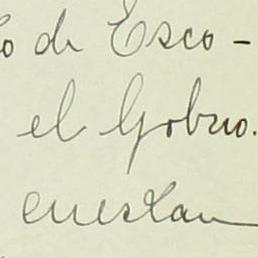 o de Esco-
el Gobno.
cuestan